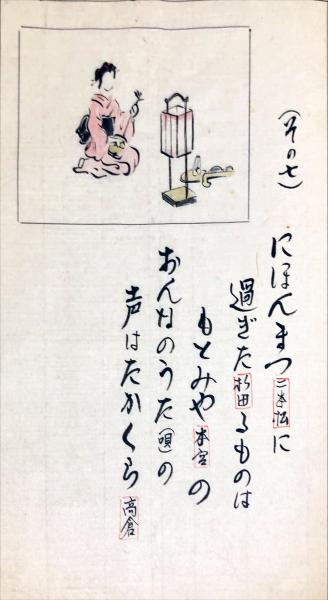 （その七）
にほんまつ二本松に
過ぎた杉田るものは
もとみや本宮の
おんなのうた（唄）の
声はたかくら高倉